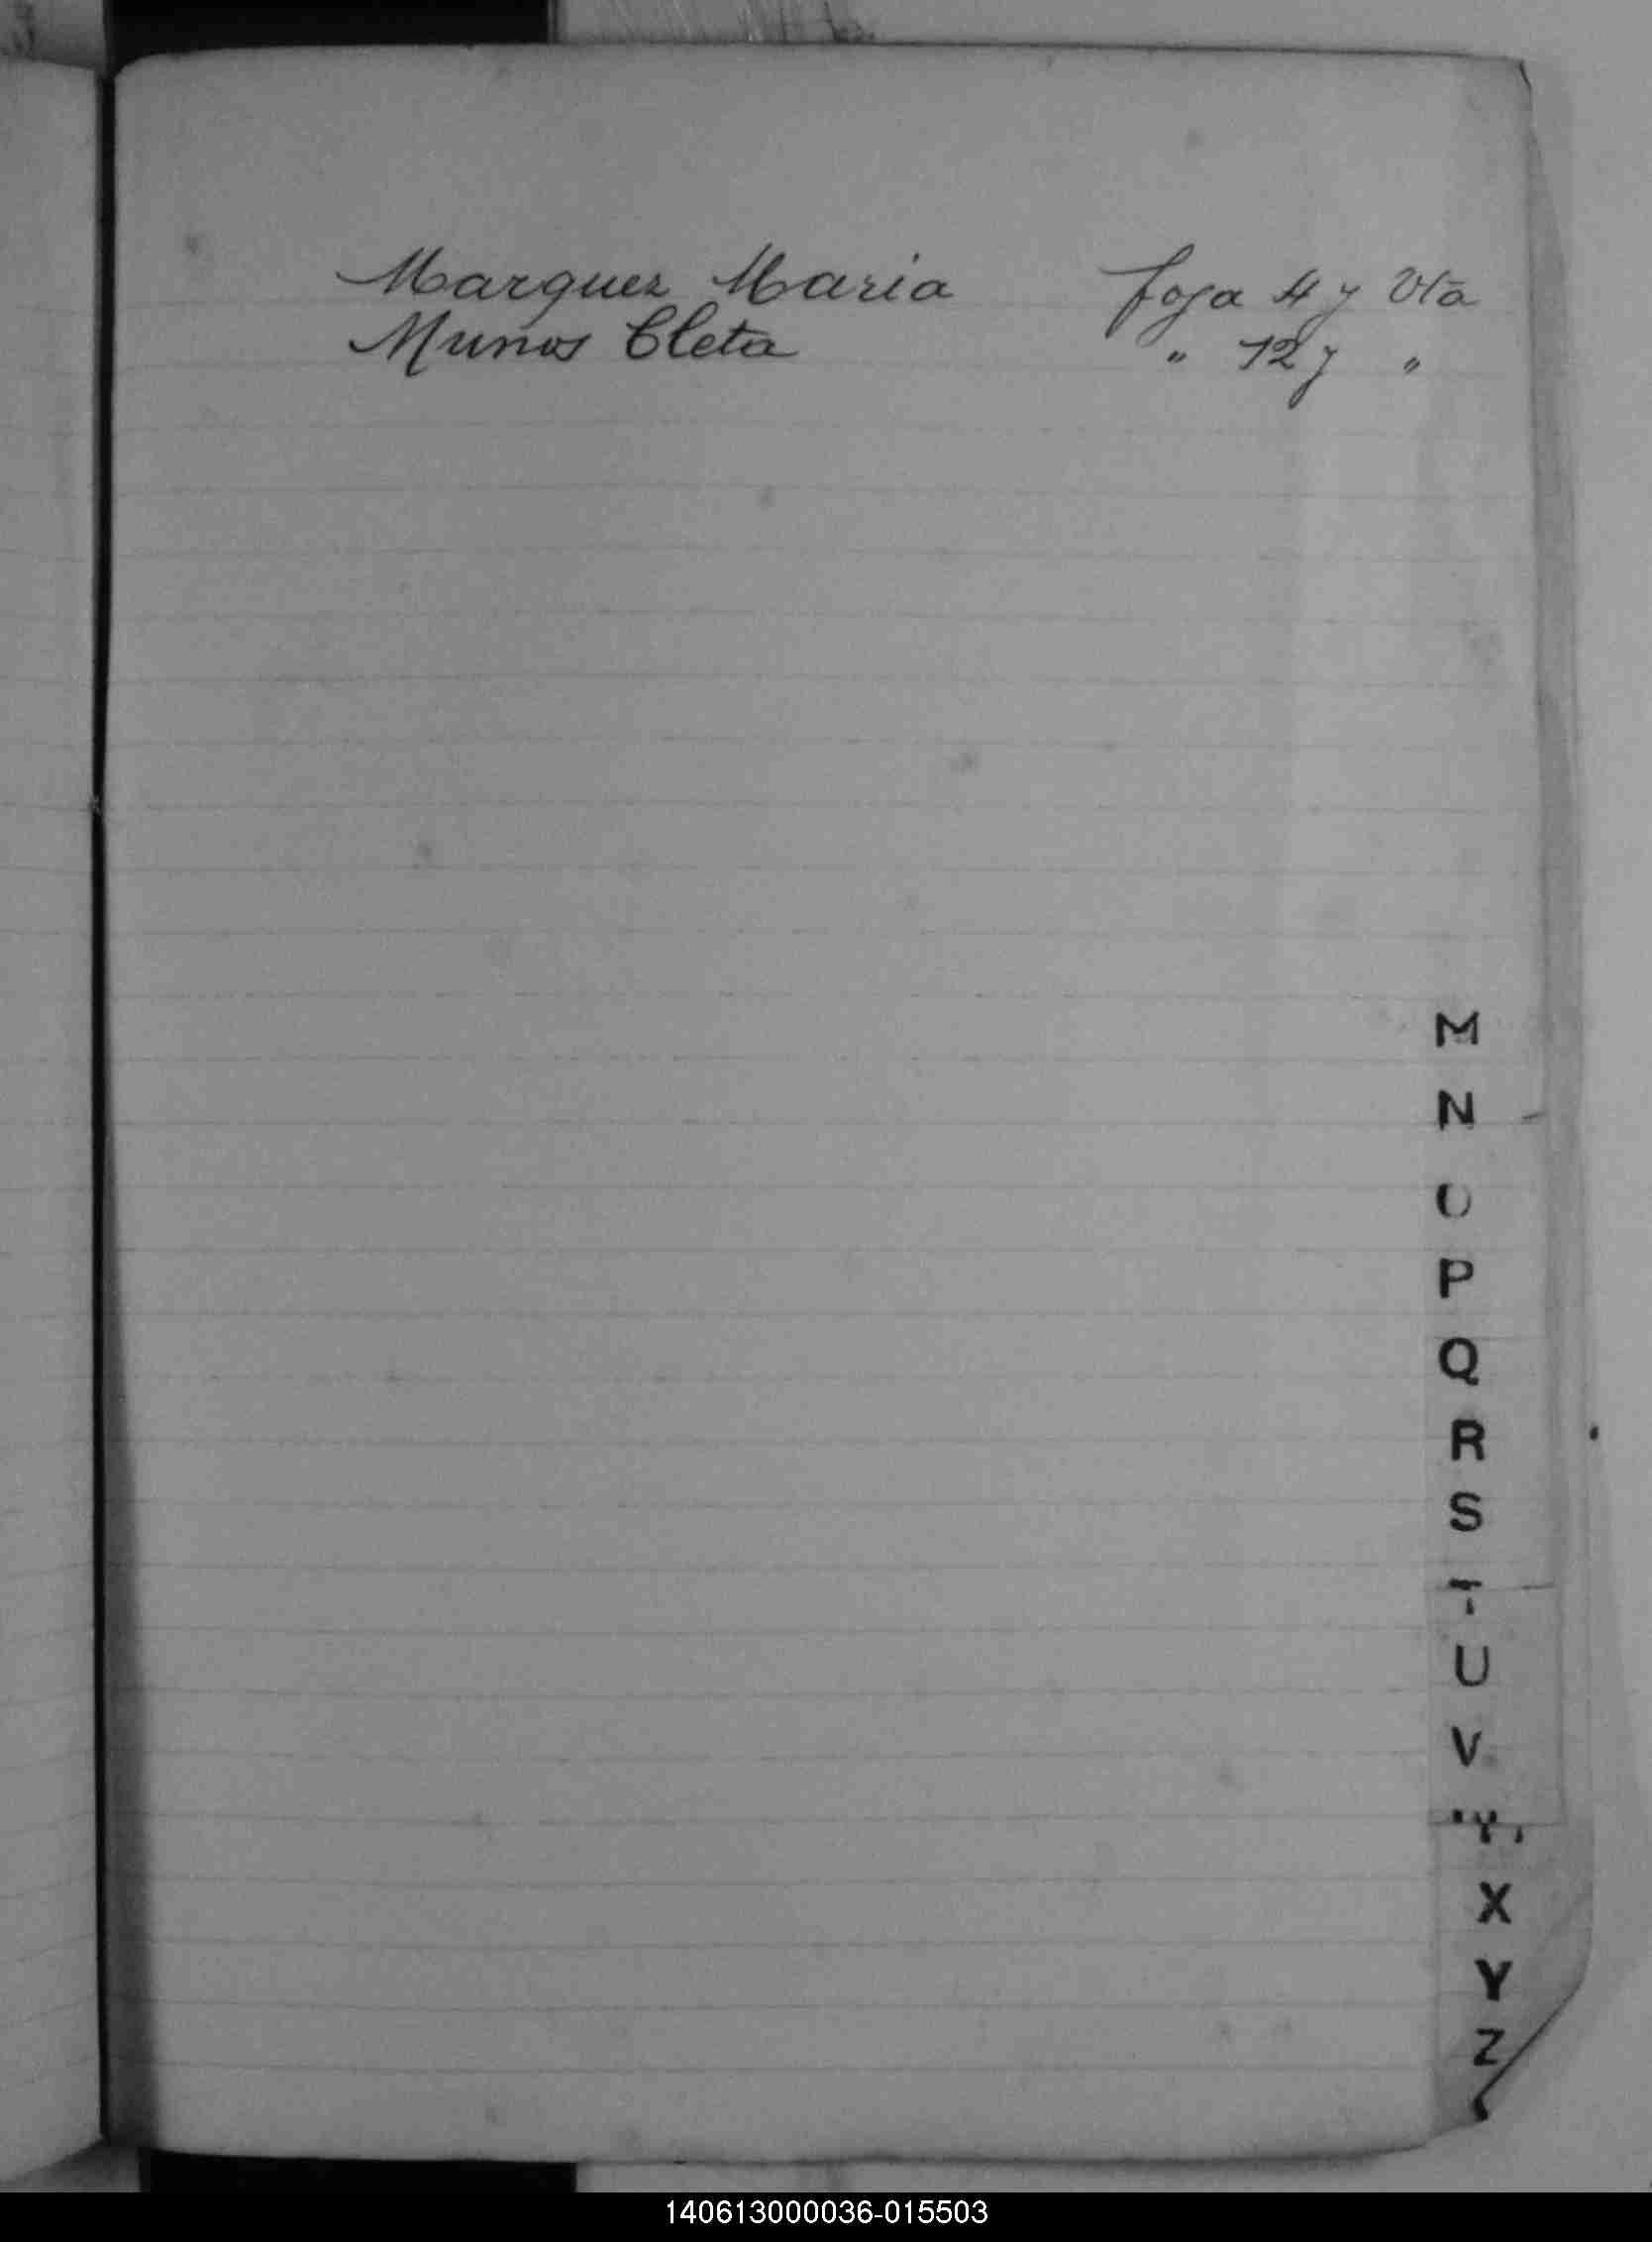 Marquez Maria foja 4 y Vta
Muños Cleta " 12 y "
M
N
O
P
Q
R
S
T
U
V
W
X
Y
Z
140613000036-015503